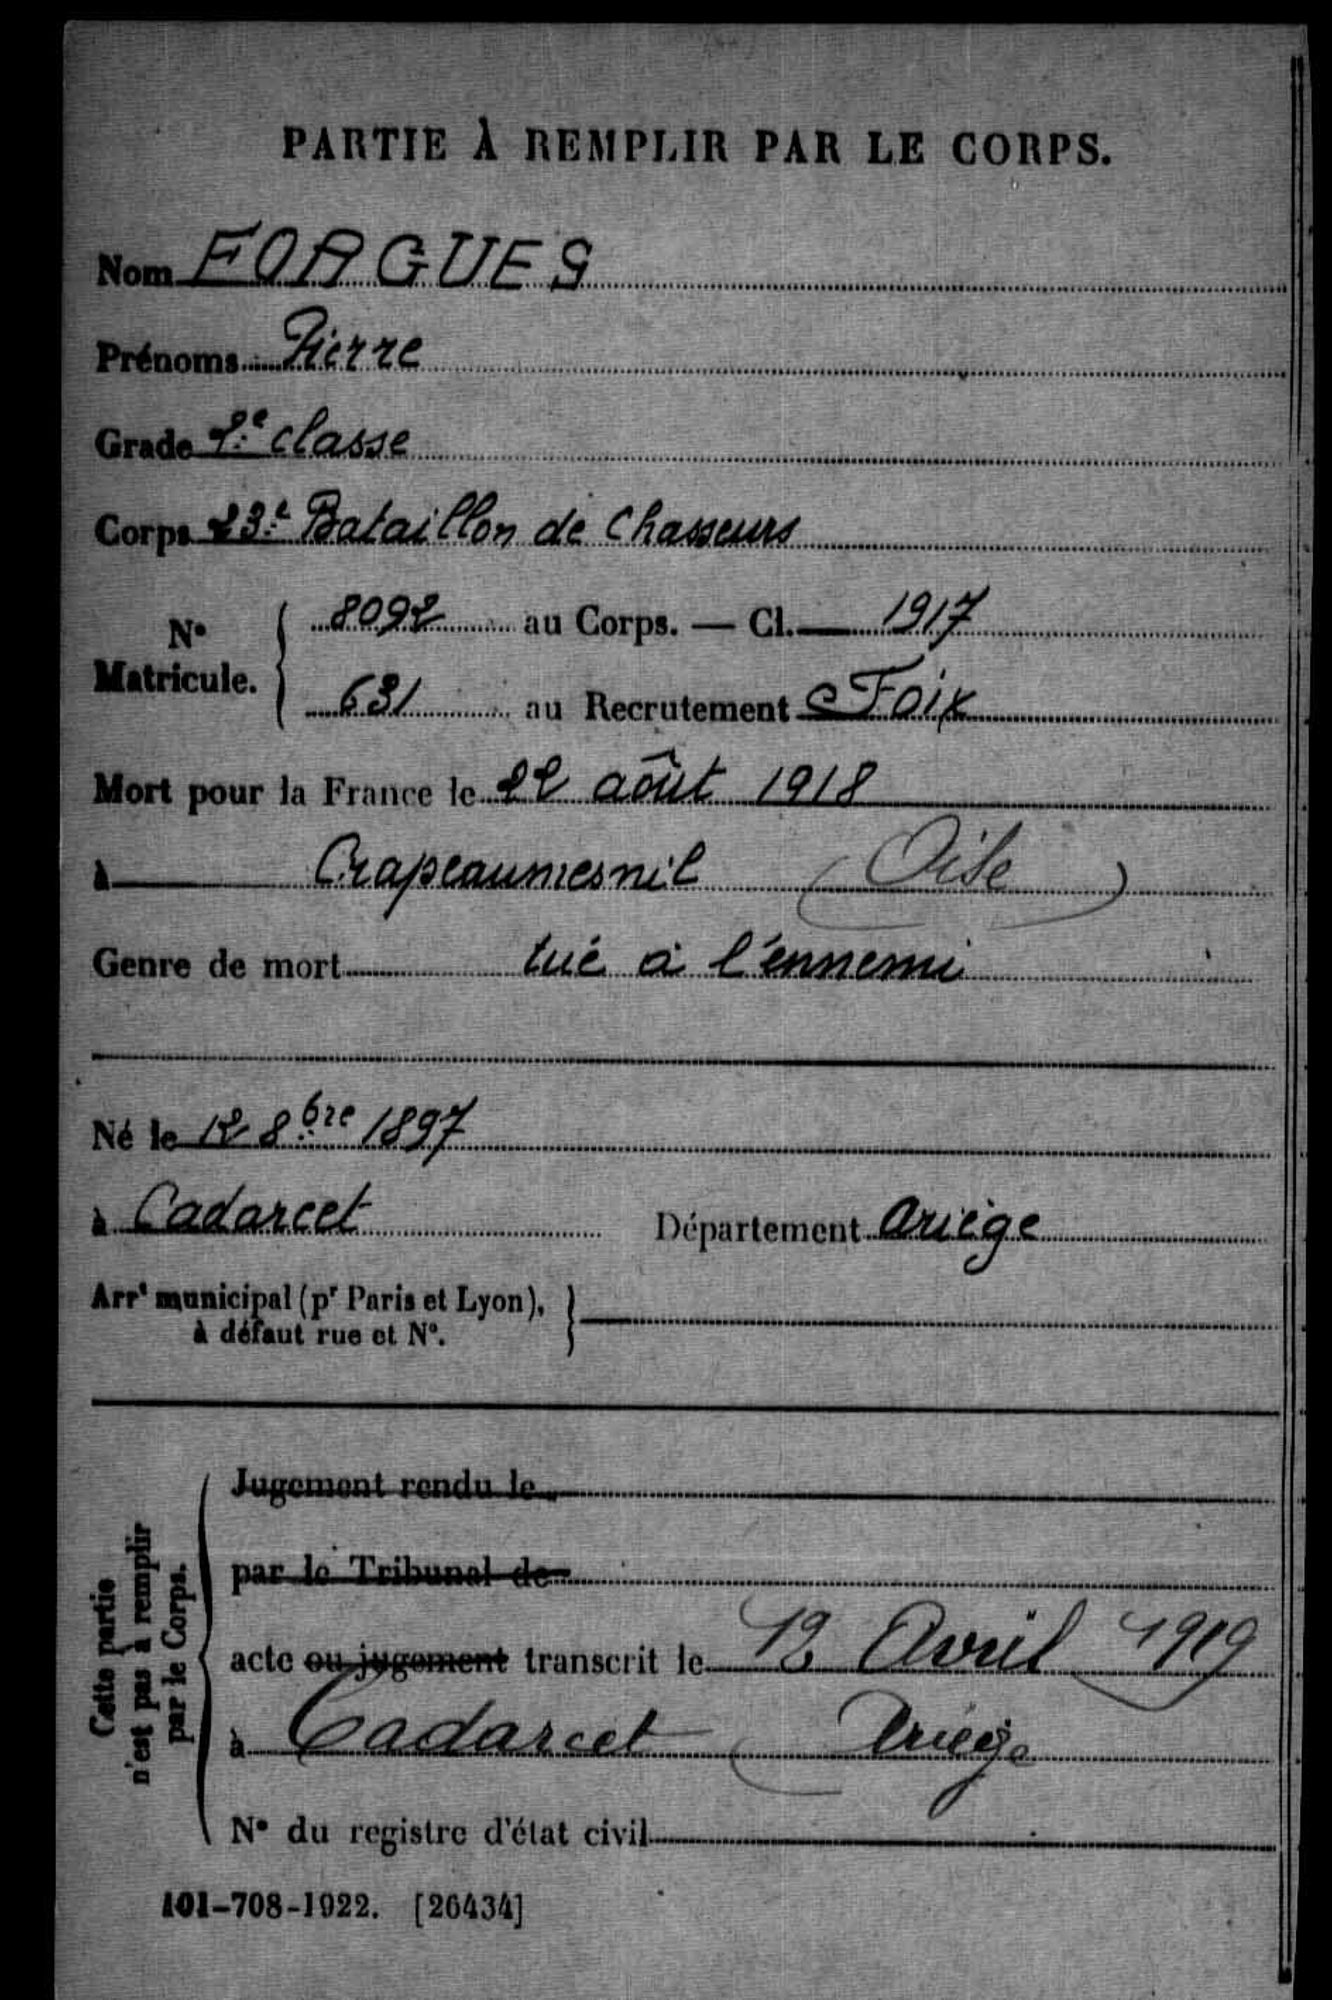 PARTIE À REMPLIR PAR LE CORPS.
Nom FORGUES
Prénoms Pierre
Grade 2e classe
Corps 23e Bataillon de Chasseurs
No Matricule. { 8092 au Corps. — Cl. 1917
631 au Recrutement Foix
Mort pour la France le 22 août 1918
à Crapeaumesnil (Oise)
Genre de mort tué à l'ennemi
Né le 12 8bre 1897
à Cadarcet Département Ariège
Arrt municipal (pr Paris et Lyon), }
à défaut rue et No.
Cette partie
n'est pas à remplir
par le Corps.
Jugement rendu le
par le Tribunal de
acte ou jugement transcrit le 12 Avril 1919
à Cadarcet (Ariège
No du registre d'état civil
101-708-1922. [26434]